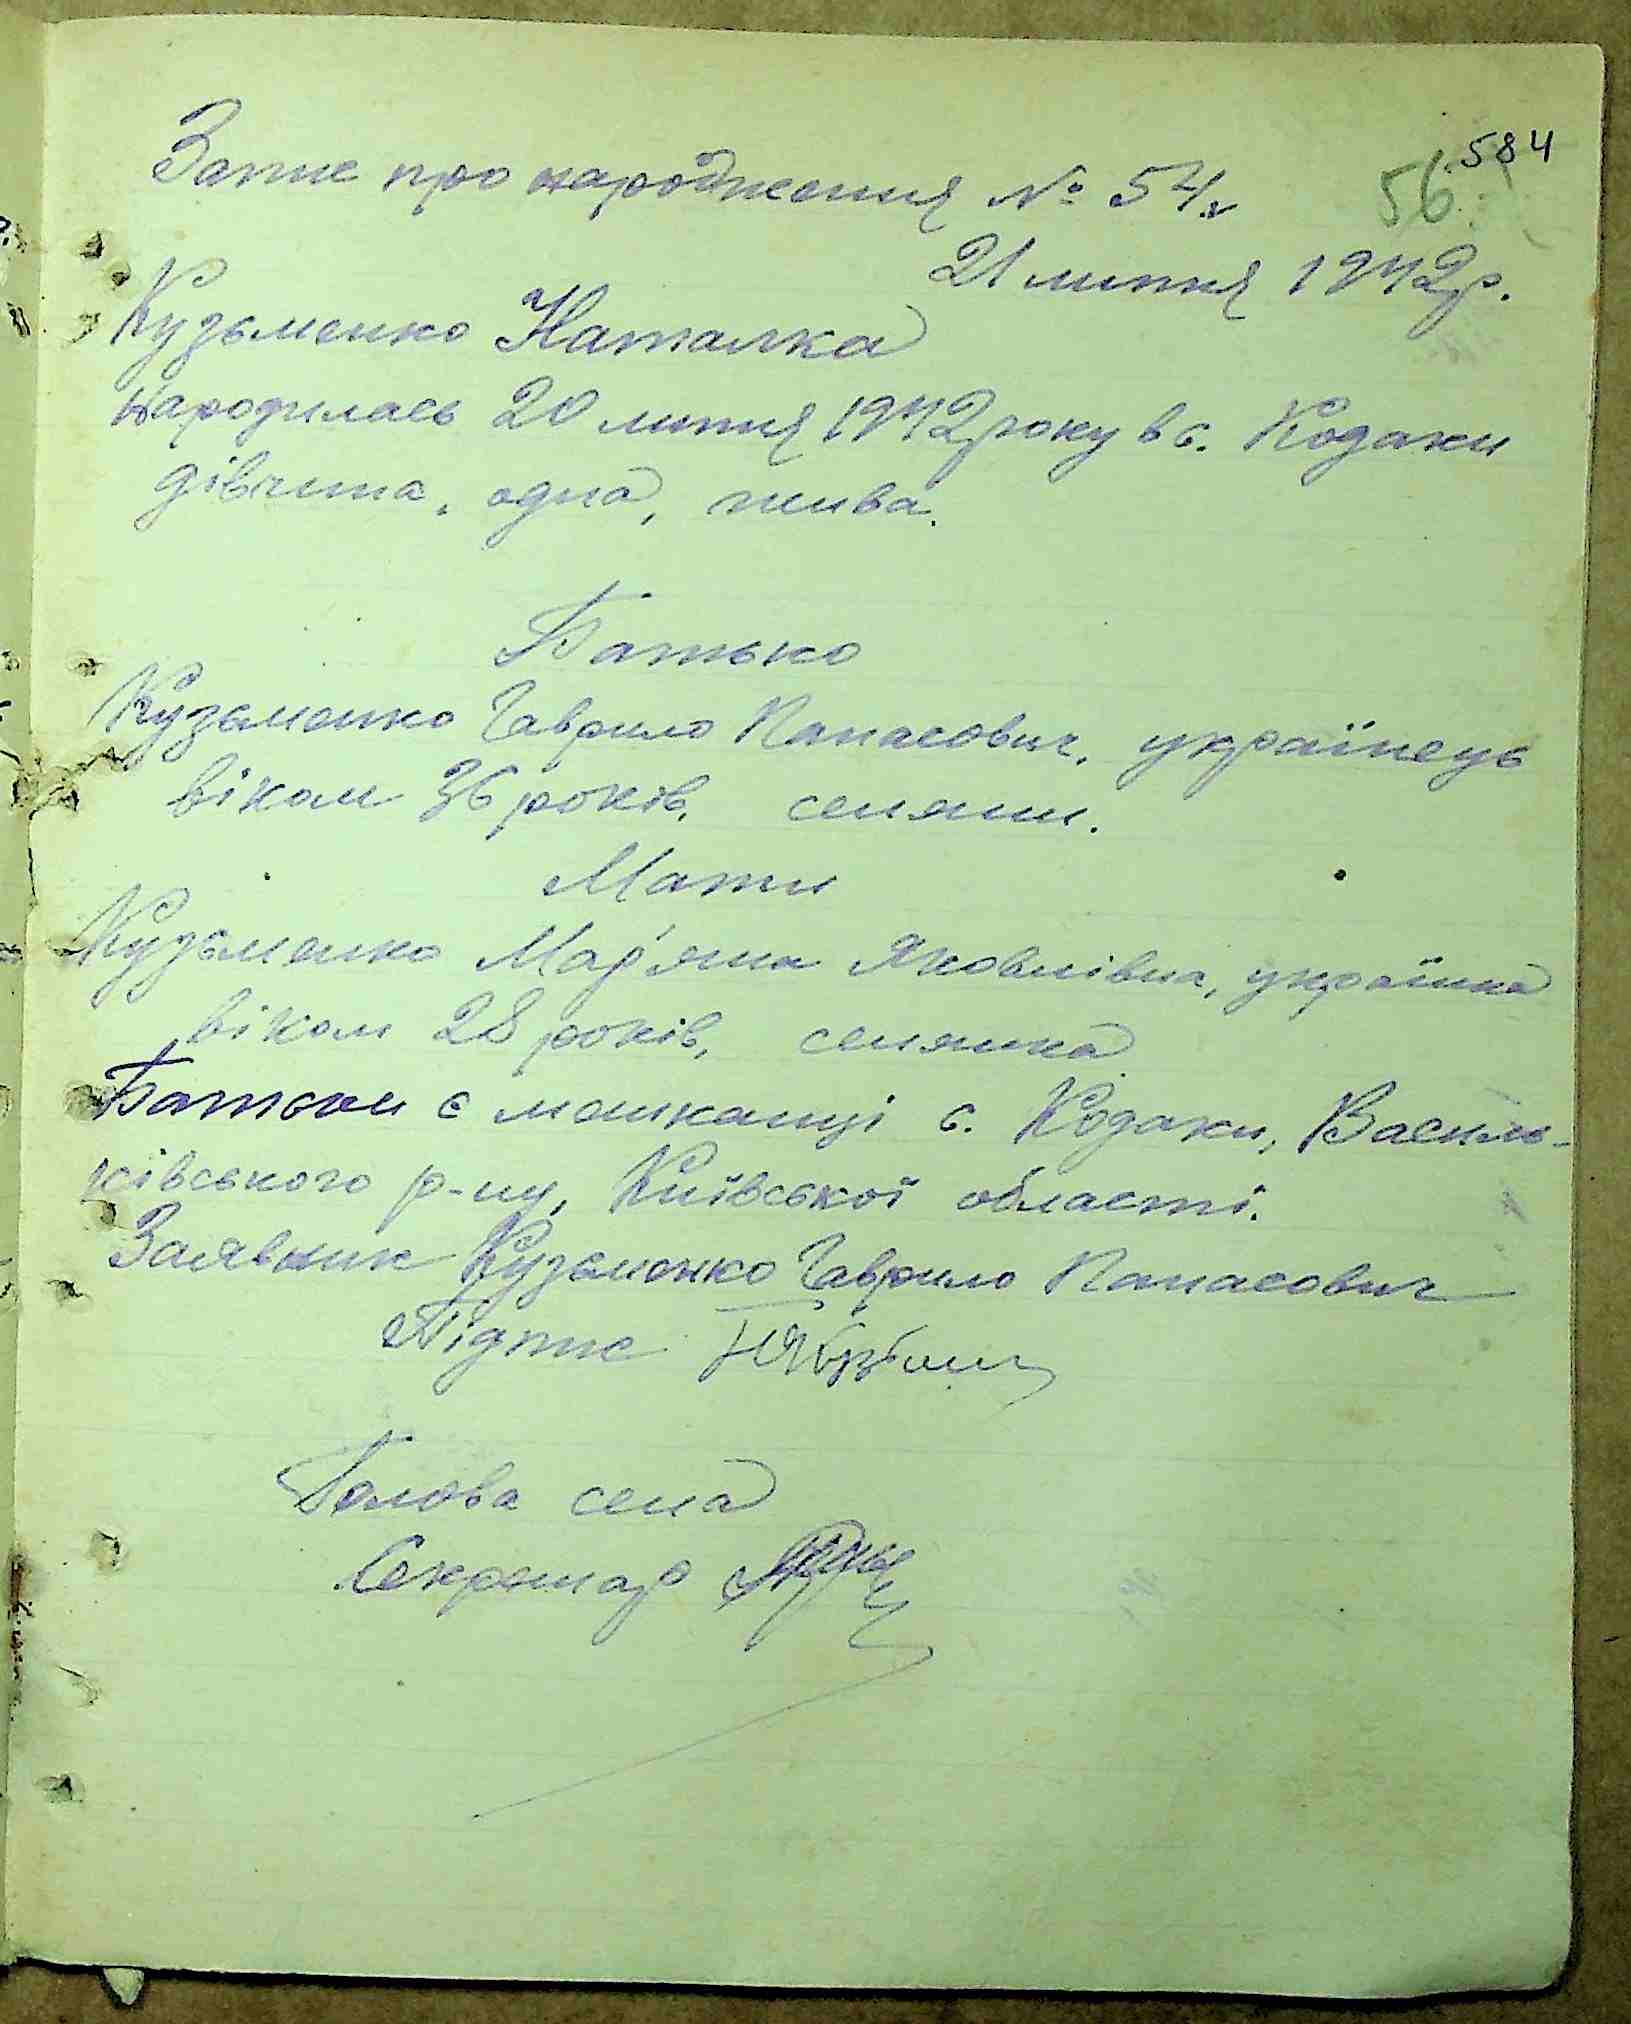 584
56
Запис про народження № 54.
21 липня 1942 р.
Кузьменко Наталка
народилась 20 липня 1942 року в с. Кодаки
дівчина, одна, жива.
Батько
Кузьменко Гаврило Панасович, українець
віком 36 років, селянин.
Мати
Кузьменко Мар'яна Яковлівна, українка
віком 28 років, селянка
Батьки є мешканці с. Кодаки, Василь-
ківського р-ну, Київської області.
Заявник Кузьменко Гаврило Панасович
Підпис
Голова села
Секретар